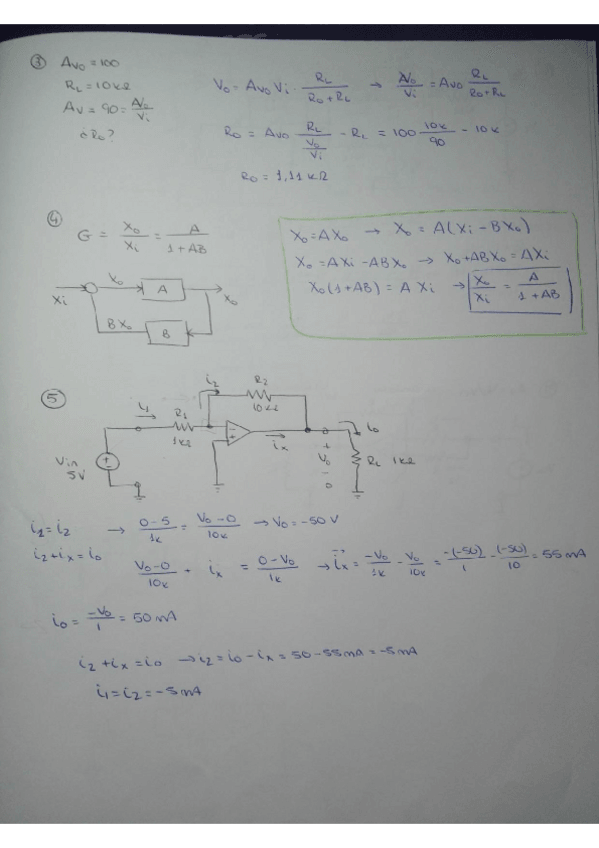 ③ Avo = 100
RL = 10kΩ
Av = 90 = Vo/Vi
¿Ro?
Vo = Avo Vi · RL/(Ro+RL) → Vo/Vi = Avo RL/(Ro+RL)
Ro = Avo RL/(Vo/Vi) - RL = 100 10k/90 - 10k
Ro = 1,11 kΩ
④ G = Xo/Xi = A/(1+AB)
Xi Xo A Xo
BXo B
Xo = AXo → Xo = A(Xi - BXo)
Xo = AXi - ABXo → Xo + ABXo = AXi
Xo(1+AB) = A Xi → Xo/Xi = A/(1+AB)
⑤
i1 R1 1kΩ i2 R2 10kΩ
Vin 5V + - - + ix + Vo - io RL 1kΩ
i1 = i2 → (0-5)/1k = (Vo-0)/10k → Vo = -50 V
i2 + ix = io
(Vo-0)/10k + ix = (0-Vo)/1k → ix = -Vo/1k - Vo/10k = -(-50)/1 - (-50)/10 = 55 mA
io = -Vo/1 = 50 mA
i2 + ix = io → i2 = io - ix = 50 - 55mA = -5mA
i1 = i2 = -5 mA